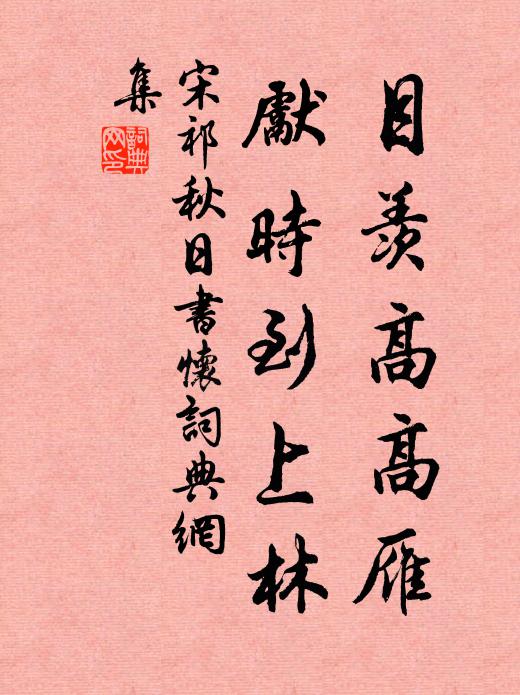 目羨高高雁
獻時到上林
宋祁秋日書懷詞典網
集
詞典
网印